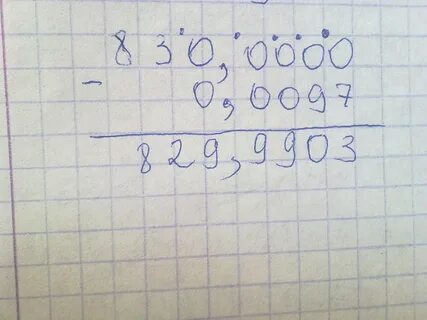 830,0000
- 0,0097
829,9903